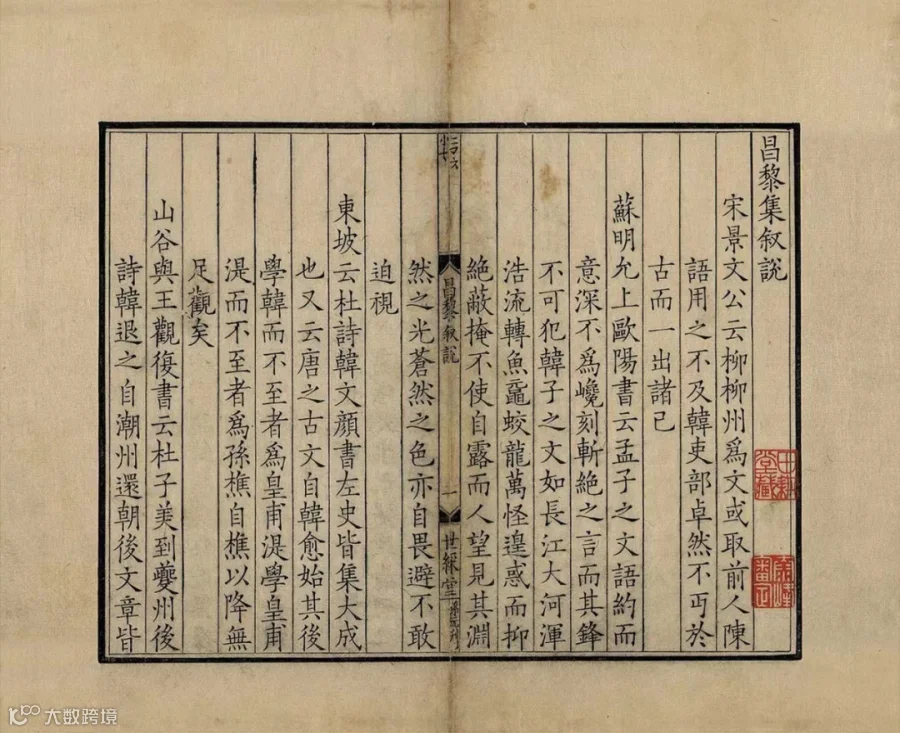 昌黎集叙說
宋景文公云柳柳州爲文或取前人陳
語用之不及韓吏部卓然不丐於
古而一出諸己
蘇明允上歐陽書云孟子之文語約而
意深不爲巉刻斬絶之言而其鋒
不可犯韓子之文如長江大河渾
浩流轉魚黿蛟龍萬怪遑惑而抑
絶蔽掩不使自露而人望見其淵
然之光蒼然之色亦自畏避不敢
迫視
昌黎叙說
一
世綵堂
東坡云杜詩韓文顔書左史皆集大成
也又云唐之古文自韓愈始其後
學韓而不至者爲皇甫湜學皇甫
湜而不至者爲孫樵自樵以降無
足觀矣
山谷與王觀復書云杜子美到夔州後
詩韓退之自潮州還朝後文章皆
大数跨境